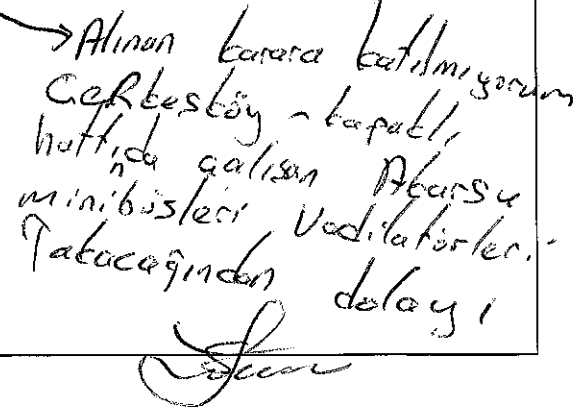 Alınan karara katılmıyorum
Çerkesköy - kapaklı
hattında çalışan Akarsu
minibüsleri Vadilatörleri
Takacağından dolayı